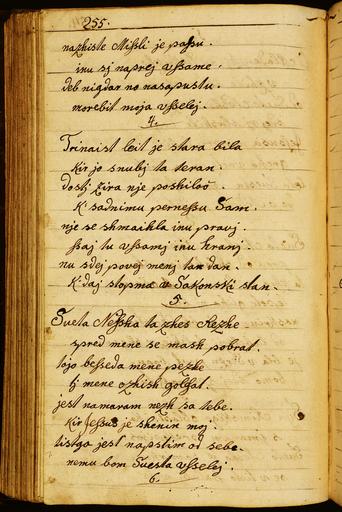 255.
nazhiste Mißli je paßu.
inu sj naprej vßame.
deb nigdar no nasapustu.
morebit moja vsselej.
4.
Trinaist leit je stara bila
kir jo snubij ta teran.
dostj zira nje poshiloo.
K' sadnimu perneßu Sam.
nje se shmaihla inu pravj.
ßaj tu vßamj inu hranj.
nu sdej povej menj tan dan.
K'daj stopma w Sakonski stan.
5.
Sveta Neßha ta zhes Rezhe
spred mene se mash pobrat.
tojo beßeda mene pezhe
tj mene ozhish golßat.
jest namaram nezh sa tebe.
Kir Jeßus je shenin moj.
tistga jest napstim od sebe.
nemu bom Svesta vßselej
6.